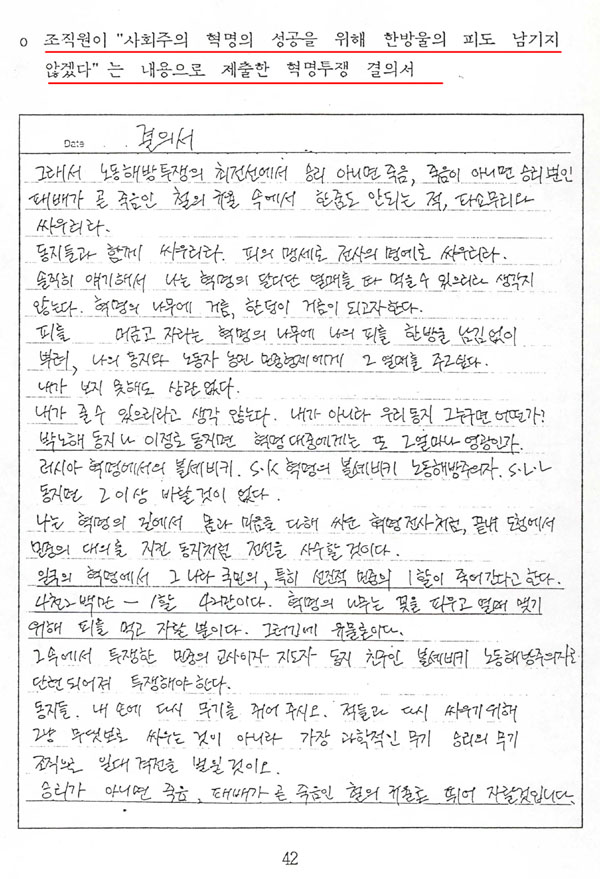 o 조직원이 "사회주의 혁명의 성공을 위해 한방울의 피도 남기지
않겠다"는 내용으로 제출한 혁명투쟁 결의서
Date 결의서
그래서 노동해방투쟁의 최전선에서 승리 아니면 죽음, 죽음이 아니면 승리뿐인
패배가 곧 죽음인 철의 규율 속에서 한줌도 안되는 적, 타소무리와
싸우리라.
동지들과 함께 싸우리라. 피의 맹세로 전사의 명예로 싸우리라.
솔직히 얘기해서 나는 혁명의 달디단 열매를 따 먹을수 있으리라 생각지
않는다. 혁명의 나무에 거름, 한덩이 거름이 되고자한다.
피를 머금고 자라는 혁명의 나무에 나의 피를 한방울 남김없이
뿌려, 나의 동지와 노동자 농민 민중형제에게 그 열매를 주고싶다.
내가 보지 못해도 상관없다.
내가 줄수 있으리라고 생각 않는다. 내가 아니라 우리동지 그누구면 어떤가?
박노해 동지나 이정로 동지면 혁명대중에게는 또 그얼마나 영광인가.
러시아 혁명에서의 볼세비키. S.K 혁명의 볼세비키 노동해방주의자. S.L.L
동지면 그이상 바랄것이 없다.
나는 혁명의 길에서 몸과 마음을 다해 싸운 혁명전사처럼, 끝내 모험에서
민중의 대의를 지킨 동지처럼 전선을 사수할 것이다.
일국의 혁명에서 그 나라 국민의, 특히 선진적 민중의 1할이 죽어간다고한다.
4천2백만 - 1할 42만이다. 혁명의 나무는 꽃을 피우고 열매 맺기
위해 피를 먹고 자랄 뿐이다. 그러길에 유물론이다.
그속에서 투쟁한 민중의 교사이자 지도자 동지 친구인 볼세비키 노동해방주의자로
단련되어져 투쟁해야한다.
동지들. 내 손에 다시 무기를 쥐어 주시오. 적들과 다시 싸우기위해
그냥 무뎃뽀로 싸우는 것이 아니라 가장 과학적인 무기 승리의 무기
조직으로 일대 격전을 벌일 것이오.
승리가 아니면 죽음, 패배가 곧 죽음인 철의 규율로 뛰어 자랄것입니다.
42